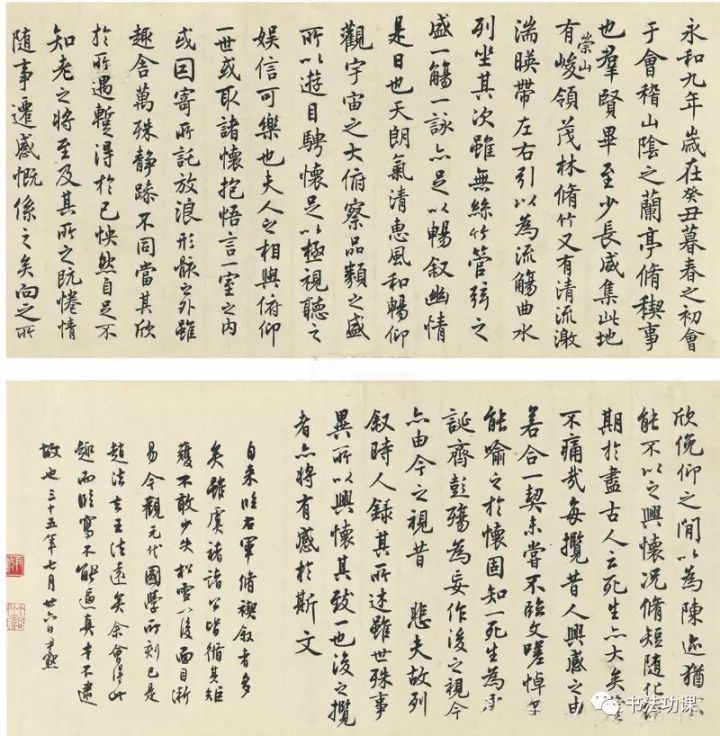 永和九年歲在癸丑暮春之初會
于會稽山陰之蘭亭脩稧事
也羣賢畢至少長咸集此地
有崇山峻領茂林脩竹又有清流激
湍暎帶左右引以為流觴曲水
列坐其次雖無絲竹管弦之
盛一觴一詠亦足以暢叙幽情
是日也天朗氣清惠風和暢仰
觀宇宙之大俯察品類之盛
所以遊目騁懷足以極視聽之
娛信可樂也夫人之相與俯仰
一世或取諸懷抱悟言一室之內
或因寄所託放浪形骸之外雖
趣舍萬殊靜躁不同當其欣
於所遇蹔得於己怏然自足不
知老之將至及其所之既惓情
隨事遷感慨係之矣向之所
欣俛仰之閒以為陳迹猶不
能不以之興懷況脩短隨化終
期於盡古人云死生亦大矣豈
不痛哉每攬昔人興感之由
若合一契未嘗不臨文嗟悼不
能喻之於懷固知一死生為虛
誕齊彭殤為妄作後之視今
亦由今之視昔 悲夫故列
叙時人錄其所述雖世殊事
異所以興懷其致一也後之攬
者亦將有感於斯文
自来臨右軍脩禊叙者多
矣雖虞褚諸公皆循其矩
矱不敢少失松雪以後面目漸
易今觀元代國學所刻已是
趙法去王法遠矣余會得此
趣而臨寫不能逼真才不逮
故也三十五年七月廿六日尹默
书法功课